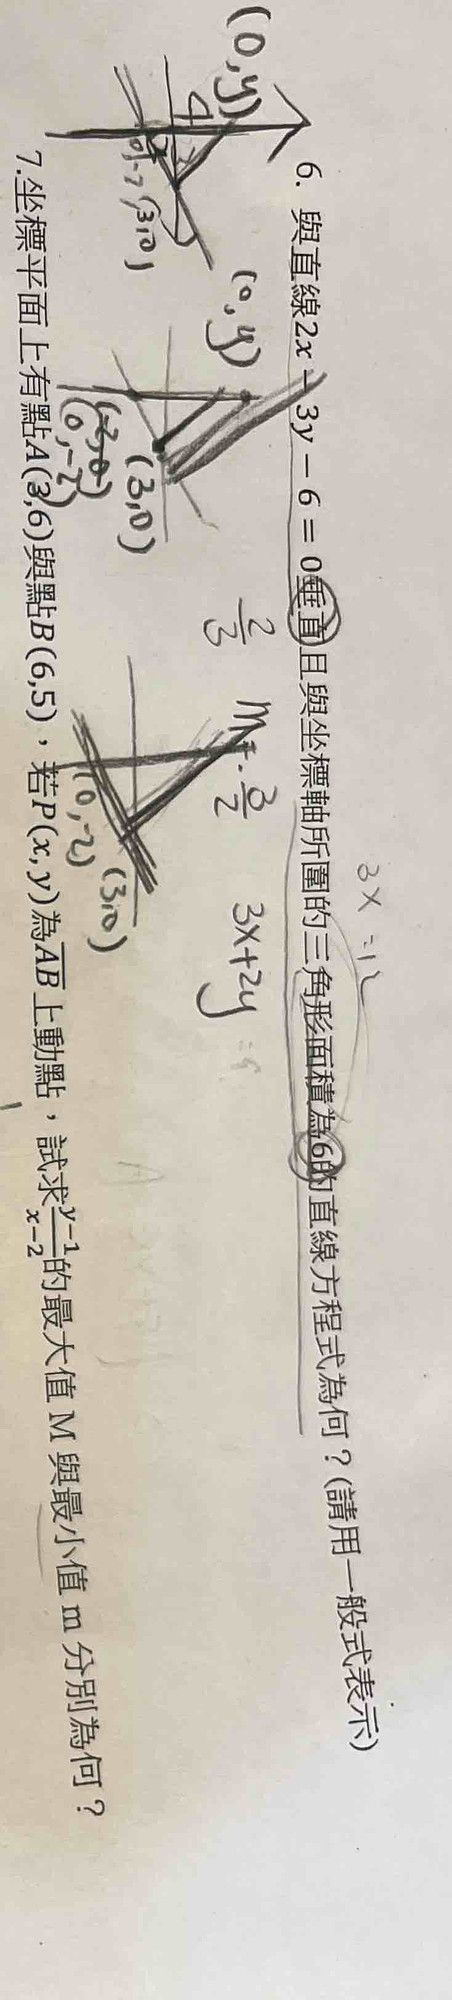 3x =12
6. 與直線2x - 3y - 6 = 0垂直且與坐標軸所圍的三角形面積為6的直線方程式為何？(請用一般式表示)
(0,y)
(0,y)
2/3
m = -3/2
3x+2y =
4
(3,0)
(3,0)
(0,-2)
(3,0)
(0,-2)
7.坐標平面上有點A(3,6)與點B(6,5)，若P(x,y)為AB上動點，試求y-1/x-2的最大值 M 與最小值 m 分別為何？